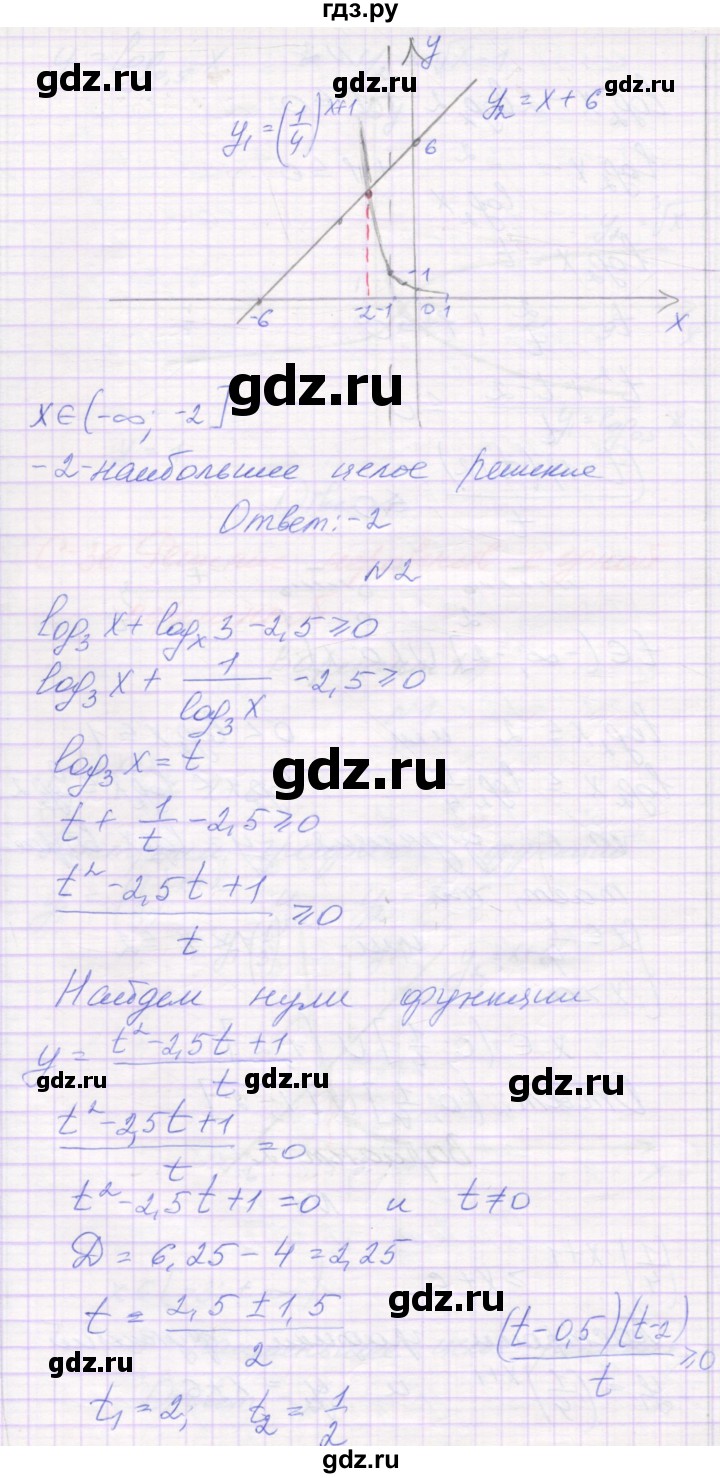 гдз.ру
gdz.ru gdz.ru gdz.ru
y
y₁ = (1/4)^(x+1)
y₂ = x + 6
6
-1
-6 -2 -1 0 1
x
gdz.ru
x ∈ (-∞; -2]
-2 - наибольшее целое решение
Ответ: -2
N2
log₃ x + logₓ 3 - 2,5 ≥ 0
log₃ x + 1/(log₃ x) - 2,5 ≥ 0
log₃ x = t
gdz.ru
t + 1/t - 2,5 ≥ 0
(t² - 2,5t + 1)/t ≥ 0
Найдем нули функции
y = (t² - 2,5t + 1)/t
gdz.ru gdz.ru gdz.ru
(t² - 2,5t + 1)/t = 0
t² - 2,5t + 1 = 0 и t ≠ 0
Д = 6,25 - 4 = 2,25
gdz.ru
t = (2,5 ± 1,5)/2
((t - 0,5)(t - 2))/t ≥ 0
gdz.ru
t₁ = 2; t₂ = 1/2
гдз.ру